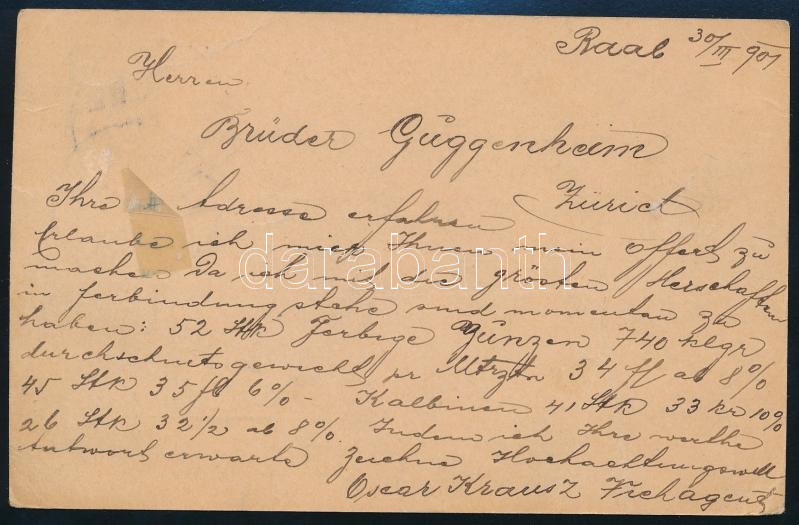 Raab 30/III 901
Herren
Brüder Guggenheim
Zürich
Ihre Adresse erfahren
Erlaube ich mich Ihnen mein offert zu
machen Da ich mit die grösten Herschaften
in ferbindung stehe sind momentan zu
haben: 52 Stk Ferbige 740 klgr
durchschnitsgewicht pr Mtrztn 34 fl ab 8%
45 Stk 35 fl 6% – Kalbinen 41 Stk 33 kr 10%
26 Stk 32 1/2 ab 8%. Indem ich Ihre werthe
Antwort erwarte zeichne Hochachtungsvoll
Oscar Krausz Viehagent
darabanth